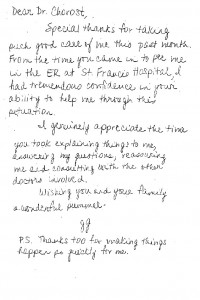 Dear Dr. Chorost,
Special thanks for taking
such good care of me this past month.
From the time you came in to see me
in the ER at St. Francis Hospital, I
had tremendous confidence in your
ability to help me through this
situation.
I genuinely appreciate the time
you took explaining things to me,
answering my questions, reassuring
me and consulting with the other
doctors involved.
Wishing you and your family
a wonderful summer.
JJ
P.S. Thanks too for making things
happen so quickly for me.